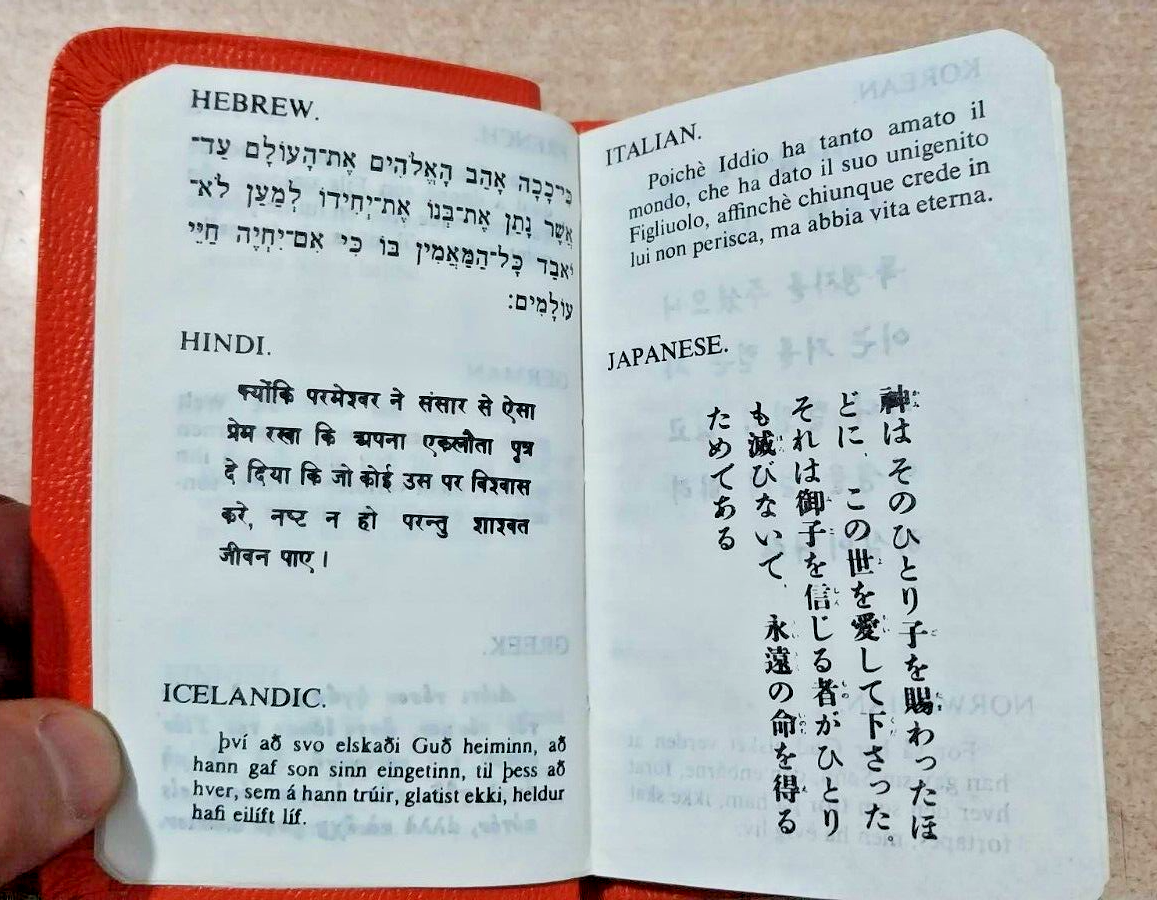 HEBREW.
כִּי־כָכָה אָהַב הָאֱלֹהִים אֶת־הָעוֹלָם עַד־
אֲשֶׁר נָתַן אֶת־בְּנוֹ אֶת־יְחִידוֹ לְמַעַן לֹא־
יֹאבַד כָּל־הַמַּאֲמִין בּוֹ כִּי אִם־יִחְיֶה חַיֵּי
עוֹלָמִים׃
HINDI.
क्योंकि परमेश्वर ने संसार से ऐसा
प्रेम रखा कि अपना एकलौता पुत्र
दे दिया कि जो कोई उस पर विश्वास
करे, नष्ट न हो परन्तु शाश्वत
जीवन पाए।
ICELANDIC.
því að svo elskaði Guð heiminn, að
hann gaf son sinn eingetinn, til þess að
hver, sem á hann trúir, glatist ekki, heldur
hafi eilíft líf.
ITALIAN.
Poichè Iddio ha tanto amato il
mondo, che ha dato il suo unigenito
Figliuolo, affinchè chiunque crede in
lui non perisca, ma abbia vita eterna.
JAPANESE.
神はそのひとり子を賜わったほ
どに、この世を愛して下さった。
それは御子を信じる者がひとり
も滅びないで、永遠の命を得る
ためである